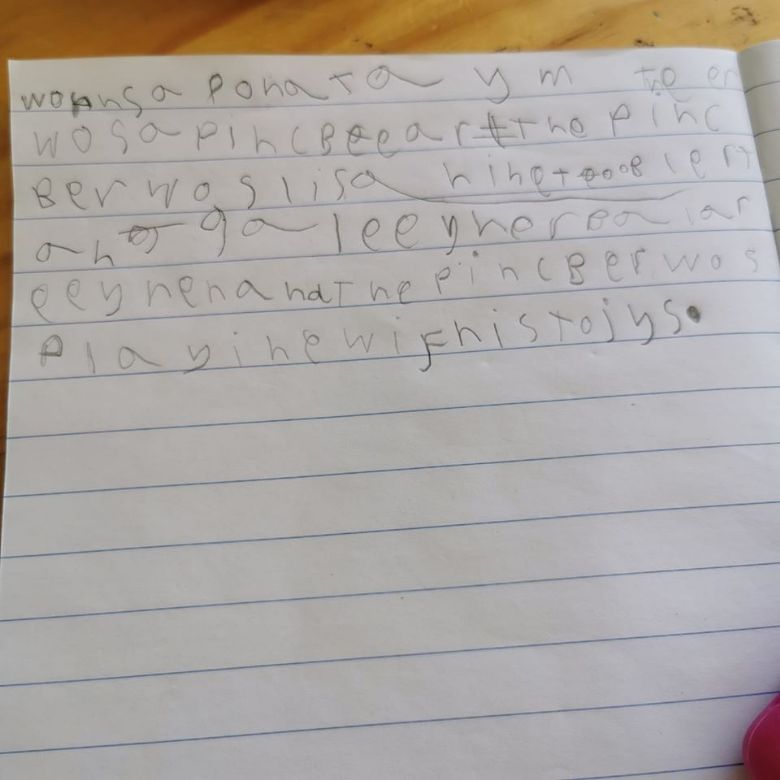 wonnsa ponata ym te er
wosa pincBeear the pinc
Ber wos lisa nine to
an galeey
eeynen and the pincBer wos
playinewifhistojys.